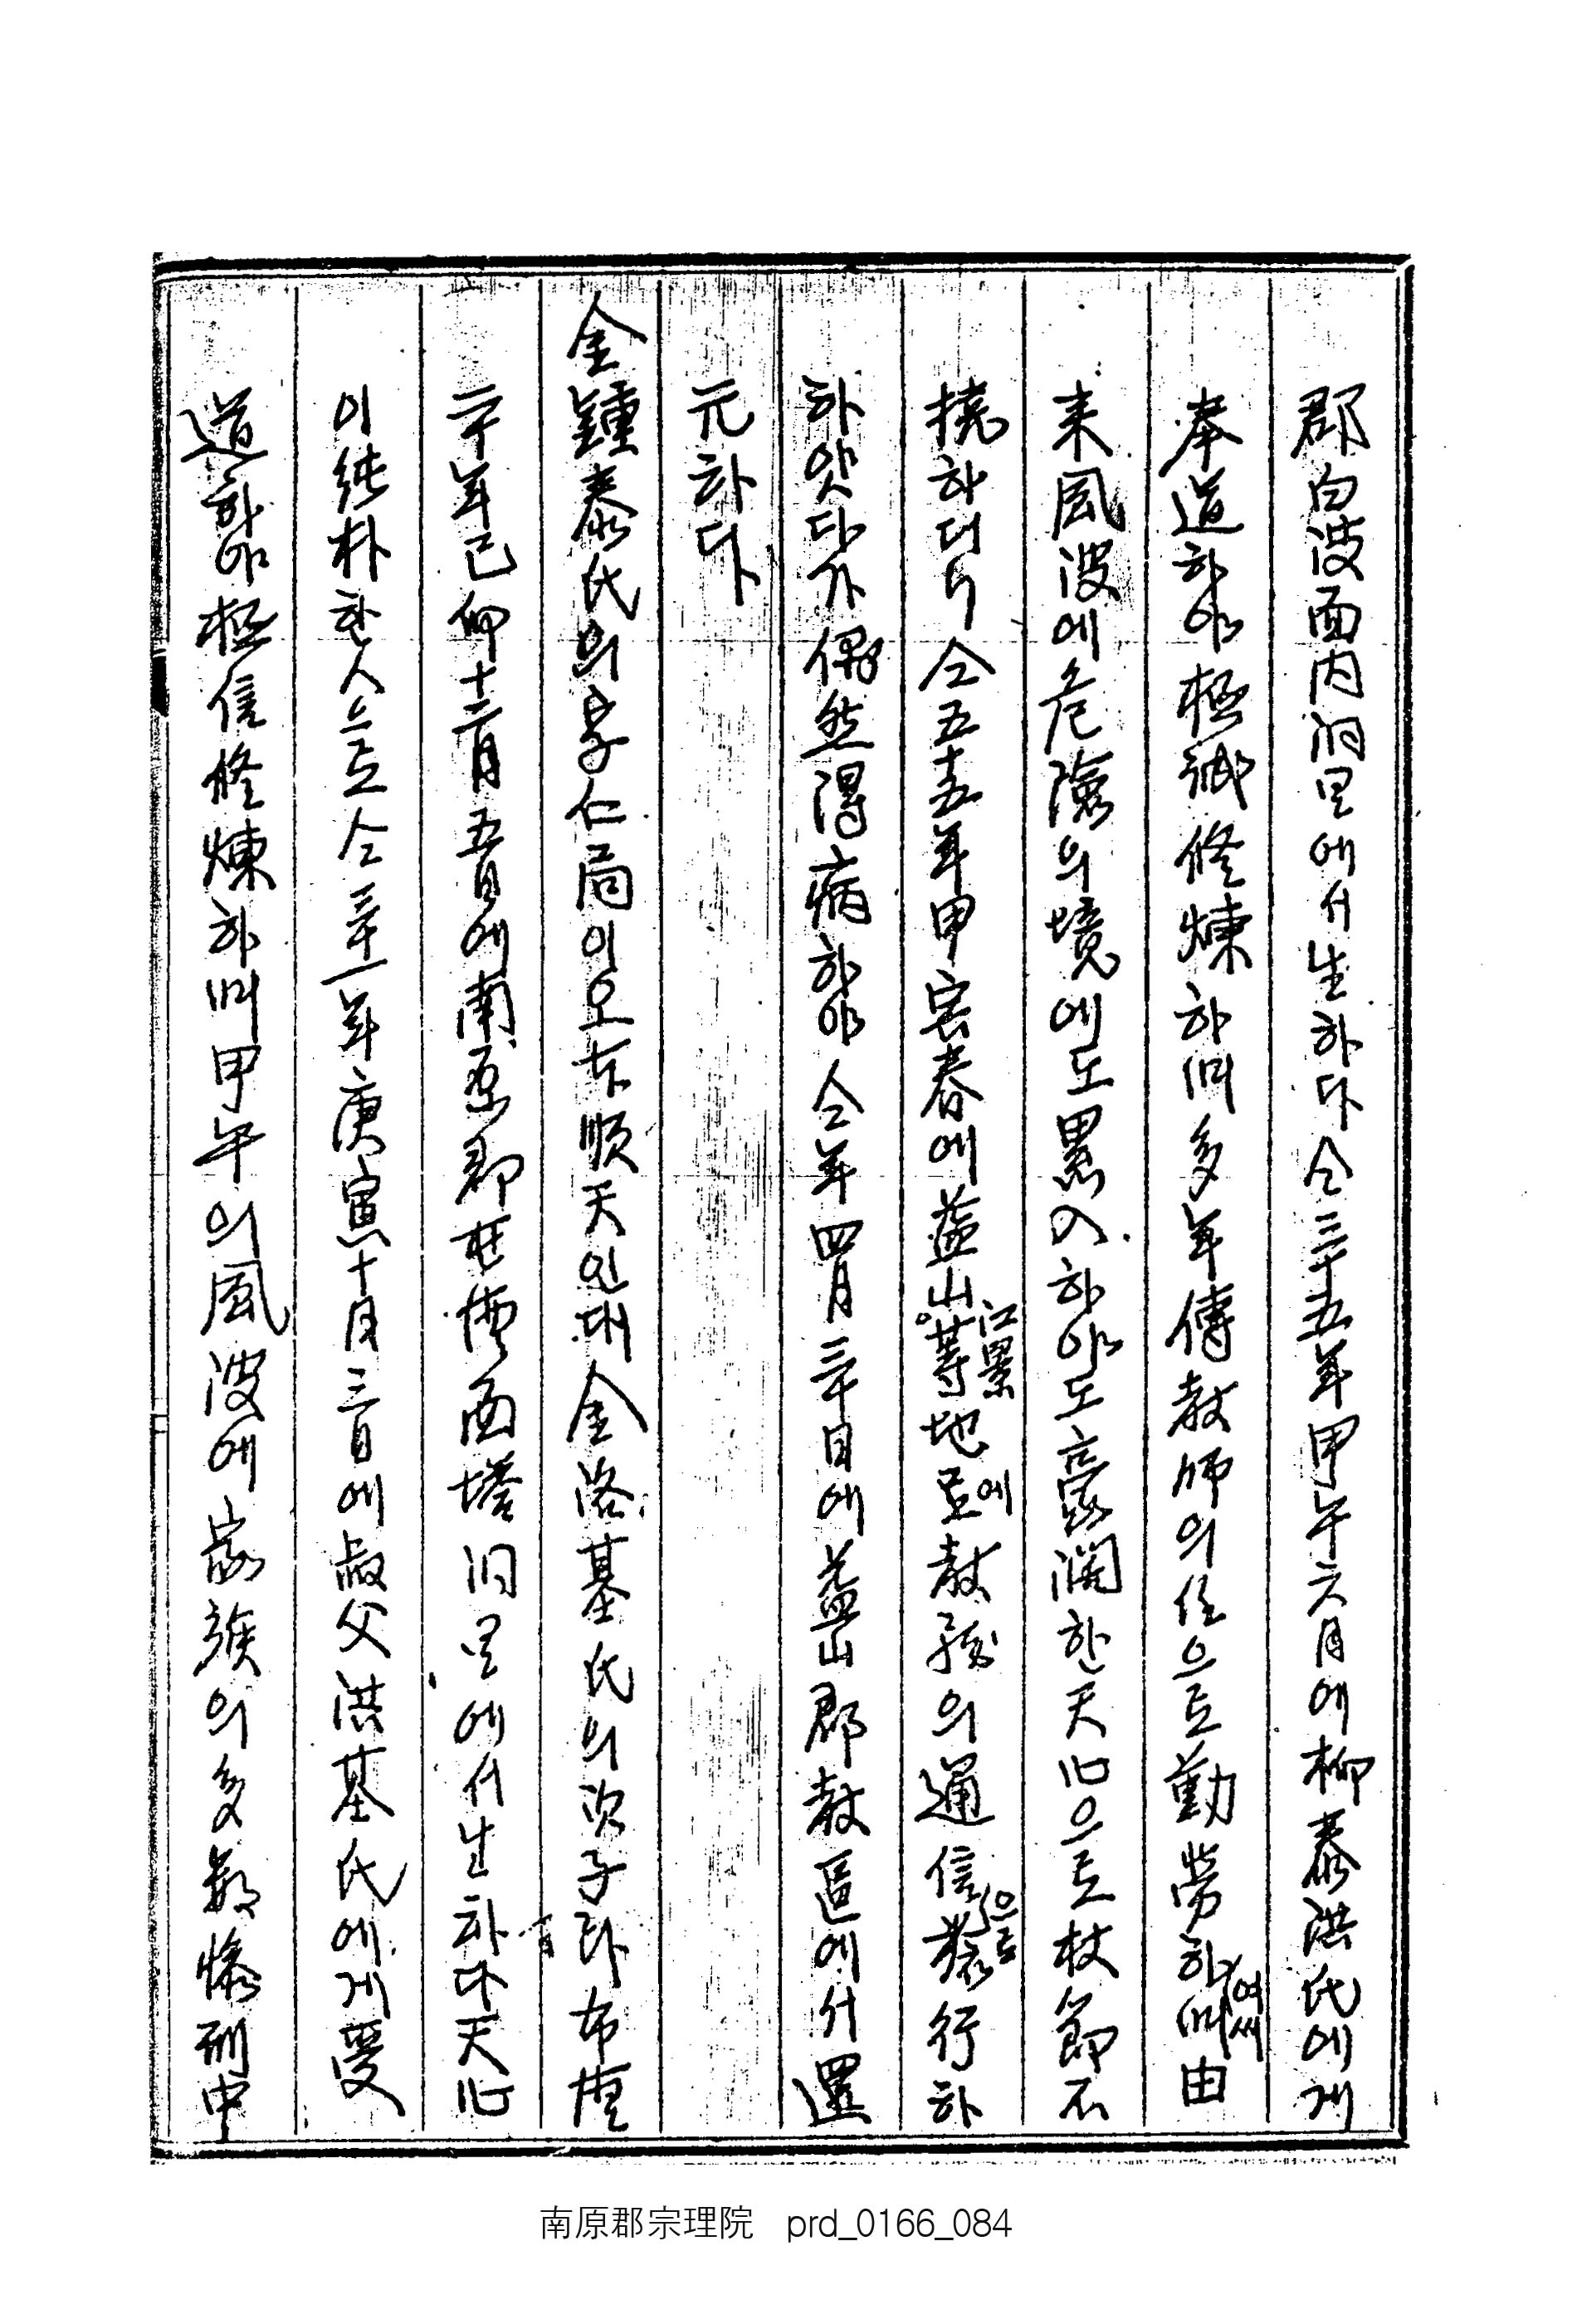 郡白波面內洞里에서生하다仝三十五年甲午六月에柳泰洪氏에게
奉道하야極誠修煉하며多年傳敎師의任으로勤勞하며여씨由
来風波에危險의境에도累入하야도豪濶한天心으로杖節不
撓하더니仝五十五年甲寅春에益山江景等地로에敎務의通信으로發行하
얏다가偶然得病하야仝年四月三十日에益山郡敎區에서還
元하다
金鍾泰氏의字仁局이오本順天인대金洛基氏의次子라布德
二十年己卯十二月五日에南原郡屯德面塔洞里에서生하다天心
이純朴한人으로仝三十一年庚寅十月三日에叔父洪基氏에게受
道하야極信修煉하며甲午의風波에家族의多數慘刑中
南原郡宗理院 prd_0166_084